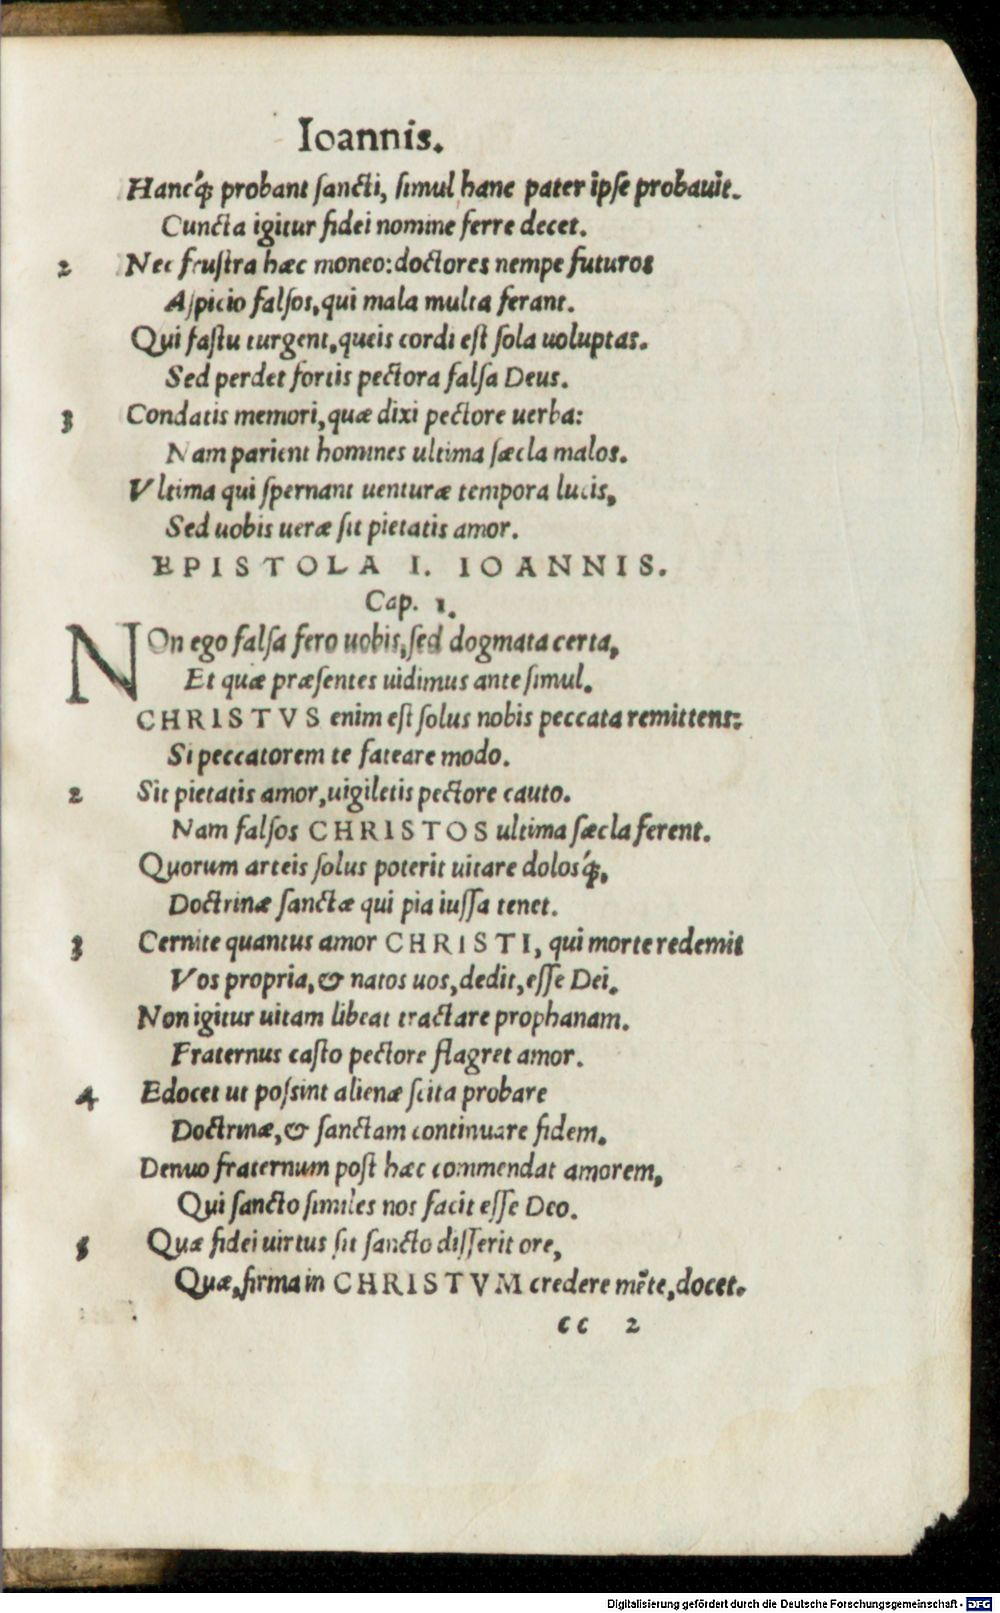 Ioannis.
Hancq́ꝫ probant ſancti, ſimul hanc pater ipſe probauit.
Cuncta igitur fidei nomine ferre decet.
2 Nec fruſtra hæc moneo: doctores nempe futuros
Aſpicio falſos, qui mala multa ferant.
Qui faſtu turgent, queis cordi eſt ſola uoluptas.
Sed perdet fortis pectora falſa Deus.
3 Condatis memori, quæ dixi pectore uerba:
Nam parient homines ultima ſæcla malos.
Vltima qui ſpernant uenturæ tempora lucis,
Sed uobis ueræ ſit pietatis amor.
EPISTOLA I. IOANNIS.
Cap. 1.
NOn ego falſa fero uobis, ſed dogmata certa,
Et quæ præſentes uidimus ante ſimul.
CHRISTVS enim eſt ſolus nobis peccata remittens:
Si peccatorem te fateare modo.
2 Sit pietatis amor, uigiletis pectore cauto.
Nam falſos CHRISTOS ultima ſæcla ferent.
Quorum arteis ſolus poterit uitare dolosq́ꝫ,
Doctrinæ ſanctæ qui pia iuſſa tenet.
3 Cernite quantus amor CHRISTI, qui morte redemit
Vos propria, & natos uos, dedit, eſſe Dei.
Non igitur uitam libeat tractare prophanam.
Fraternus caſto pectore flagret amor.
4 Edocet ut poſsint alienæ ſcita probare
Doctrinæ, & ſanctam continuare fidem.
Denuo fraternum poſt hæc commendat amorem,
Qui ſancto ſimiles nos facit eſſe Deo.
5 Quæ fidei uirtus ſit ſancto diſſerit ore,
Quæ, firma in CHRISTVM credere mẽte, docet.
cc 2
Digitalisierung gefördert durch die Deutsche Forschungsgemeinschaft - DFG